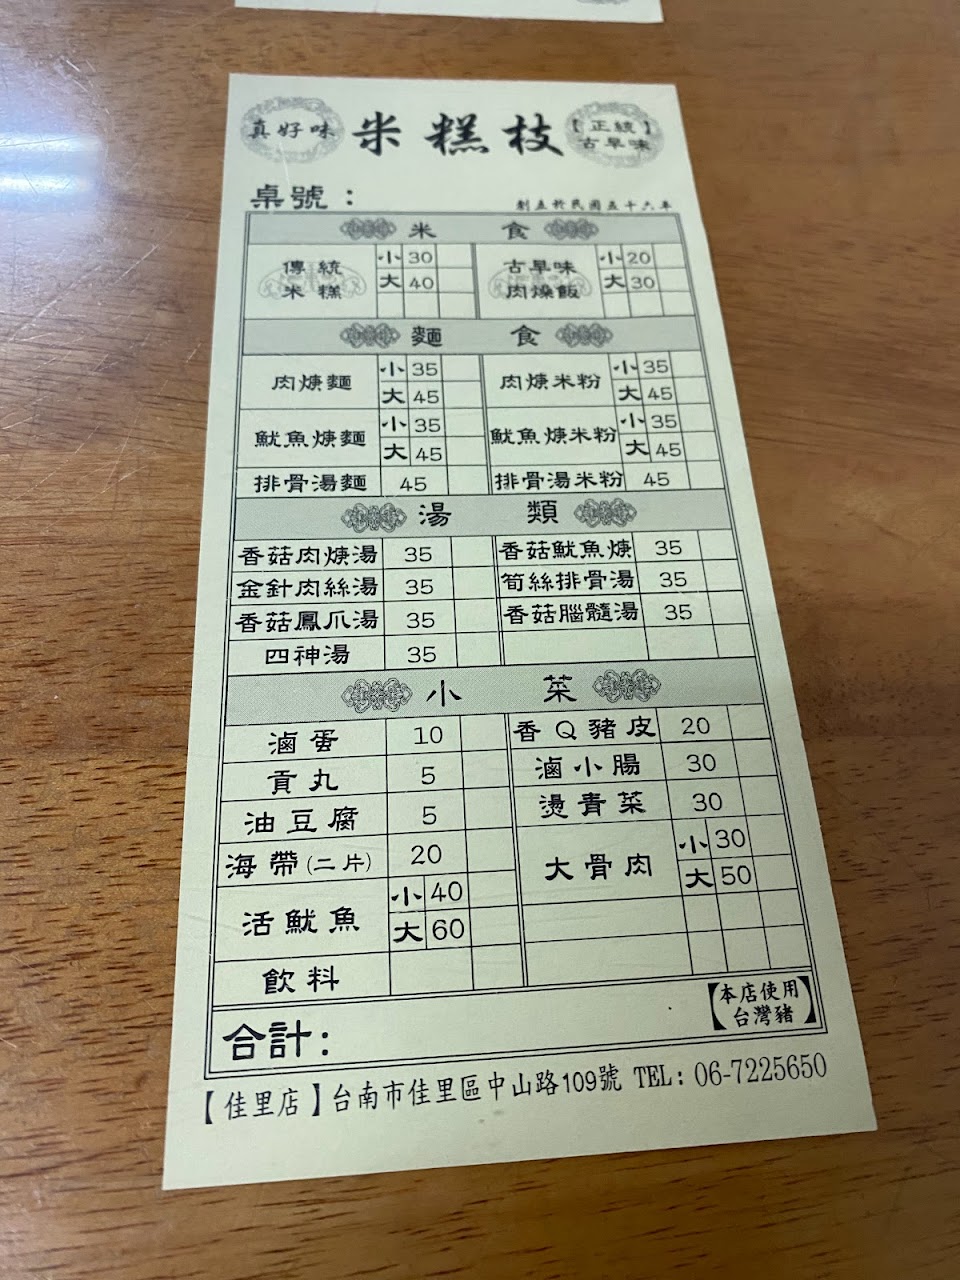 真好味 米糕枝 【正統】古早味
桌號：
創立於民國五十六年
米食
傳統米糕 小 30 大 40
古早味肉燥飯 小 20 大 30
麵食
肉焿麵 小 35 大 45
肉焿米粉 小 35 大 45
魷魚焿麵 小 35 大 45
魷魚焿米粉 小 35 大 45
排骨湯麵 45
排骨湯米粉 45
湯類
香菇肉焿湯 35
香菇魷魚焿 35
金針肉絲湯 35
筍絲排骨湯 35
香菇鳳爪湯 35
香菇腦髓湯 35
四神湯 35
小菜
滷蛋 10
香Q豬皮 20
貢丸 5
滷小腸 30
油豆腐 5
燙青菜 30
海帶(二片) 20
大骨肉 小 30 大 50
活魷魚 小 40 大 60
飲料
合計：
【本店使用台灣豬】
【佳里店】台南市佳里區中山路109號 TEL：06-7225650